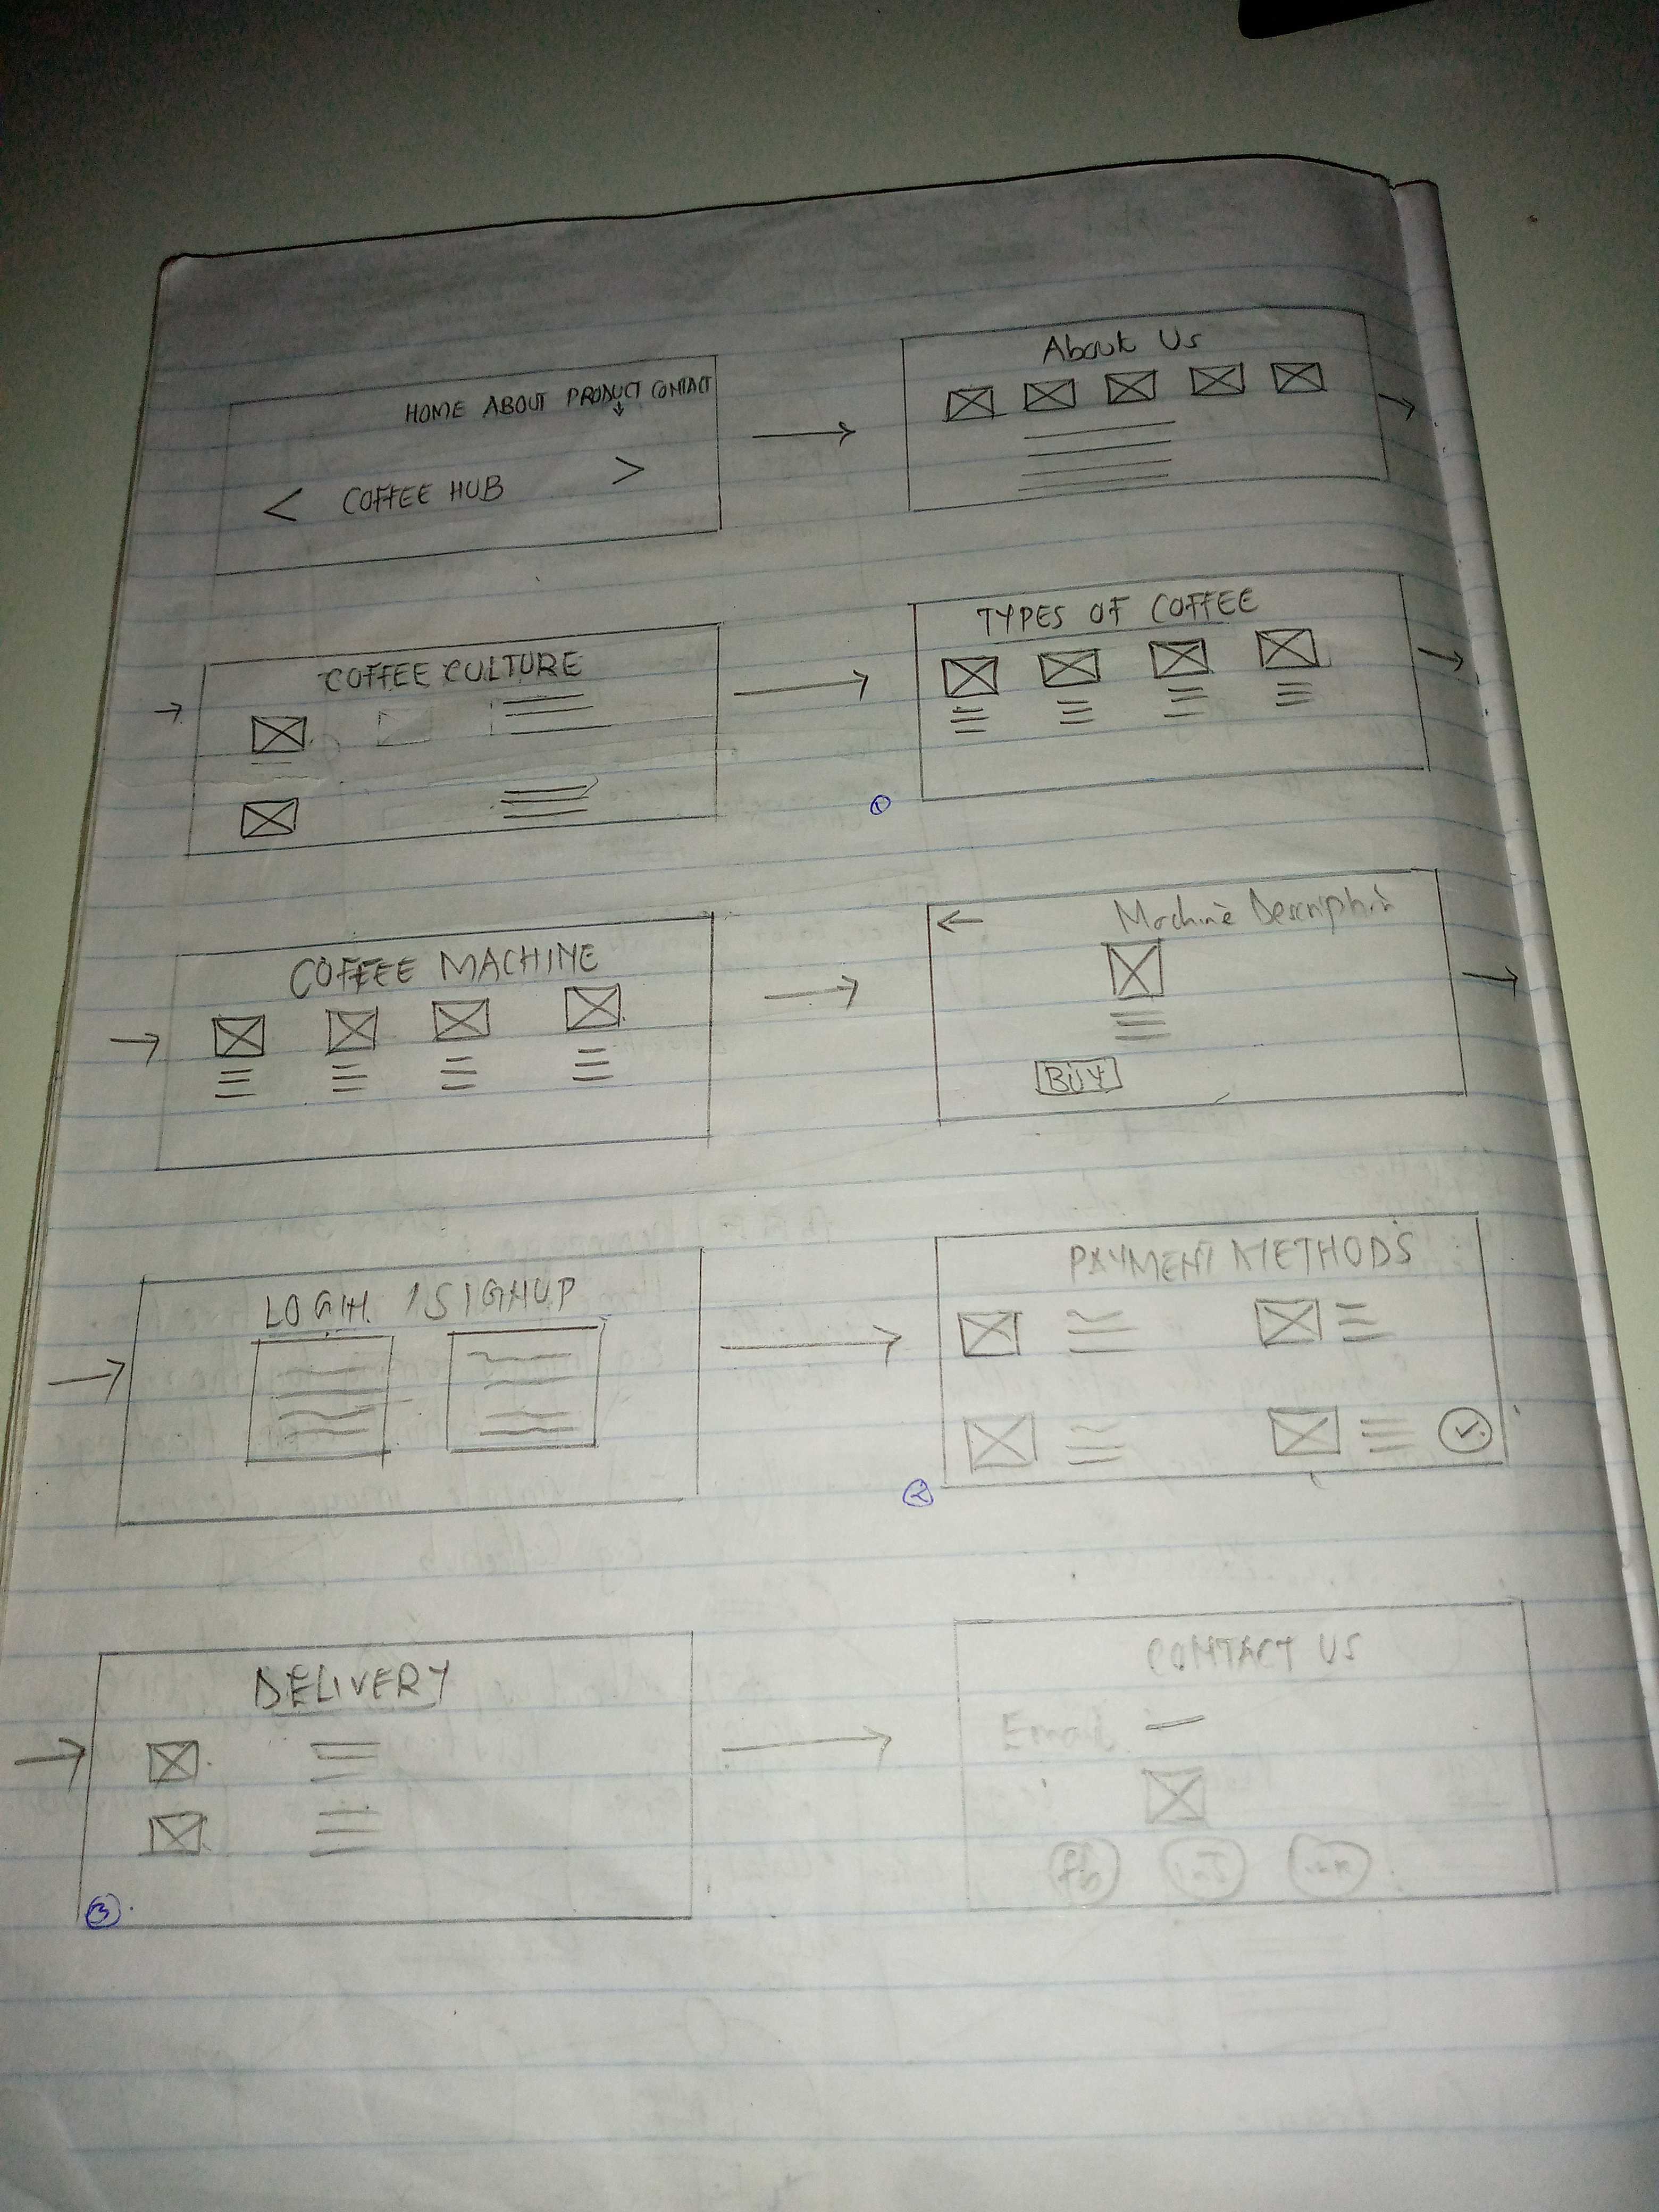 HOME ABOUT PRODUCT CONTACT
< COFFEE HUB >
About Us
COFFEE CULTURE
TYPES OF COFFEE
1
COFFEE MACHINE
Machine Descriptn
BUY
LOGIN / SIGNUP
PAYMENT METHODS
2
DELIVERY
3
CONTACT US
Email
fb